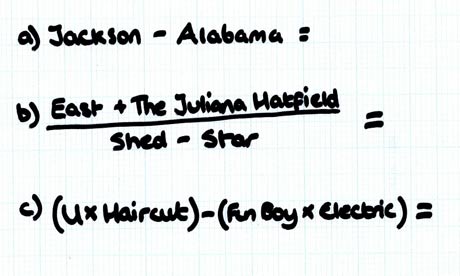 a) Jackson - Alabama =
b) East + The Juliana Hatfield
Shed - Star
=
c) (U x Haircut) - (Fun Boy x Electric) =